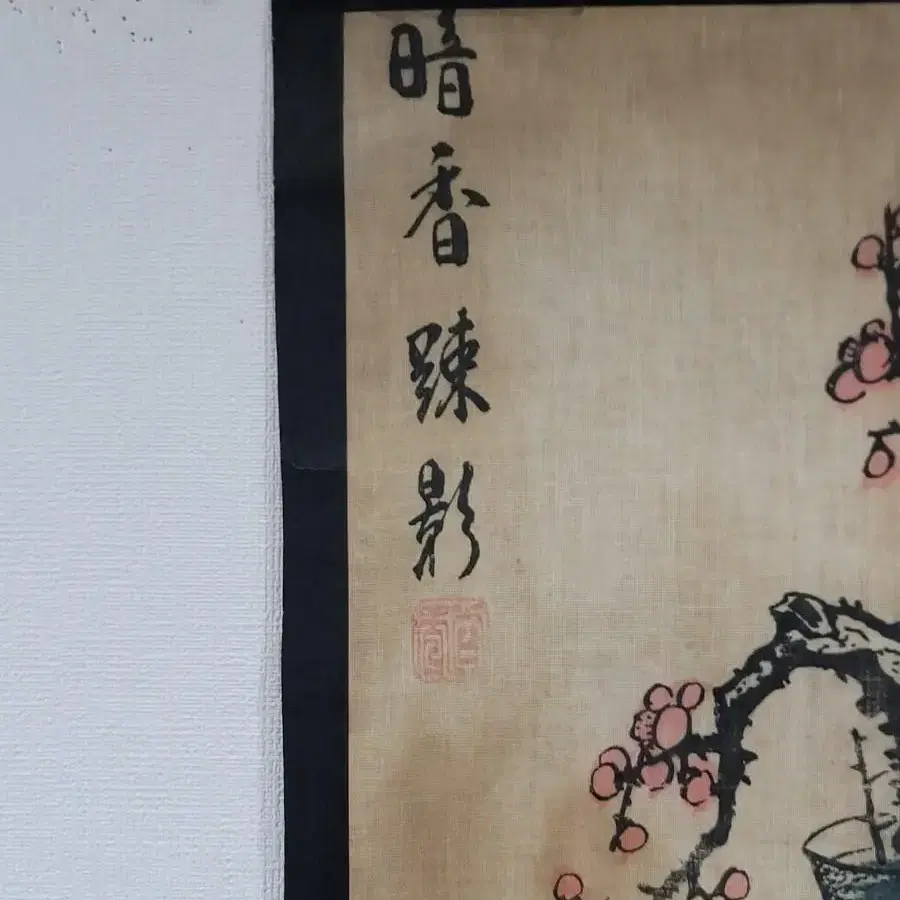 暗香踈影